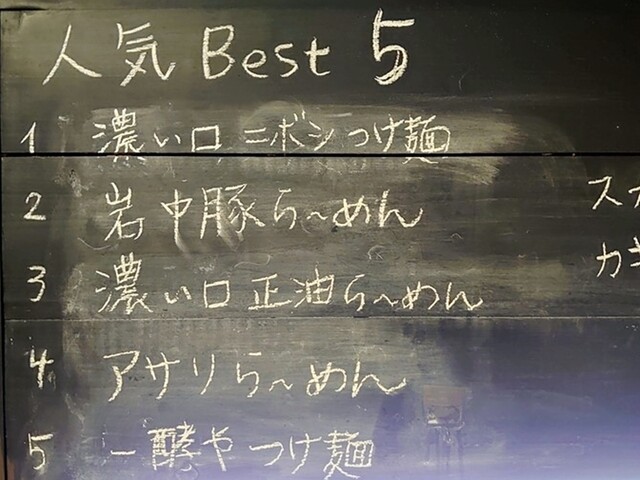 人気 Best 5
1 濃い口ニボシつけ麺
2 岩中豚ら〜めん
ス
3 濃い口正油ら〜めん
カキ
4 アサリら〜めん
5 一酵やつけ麺